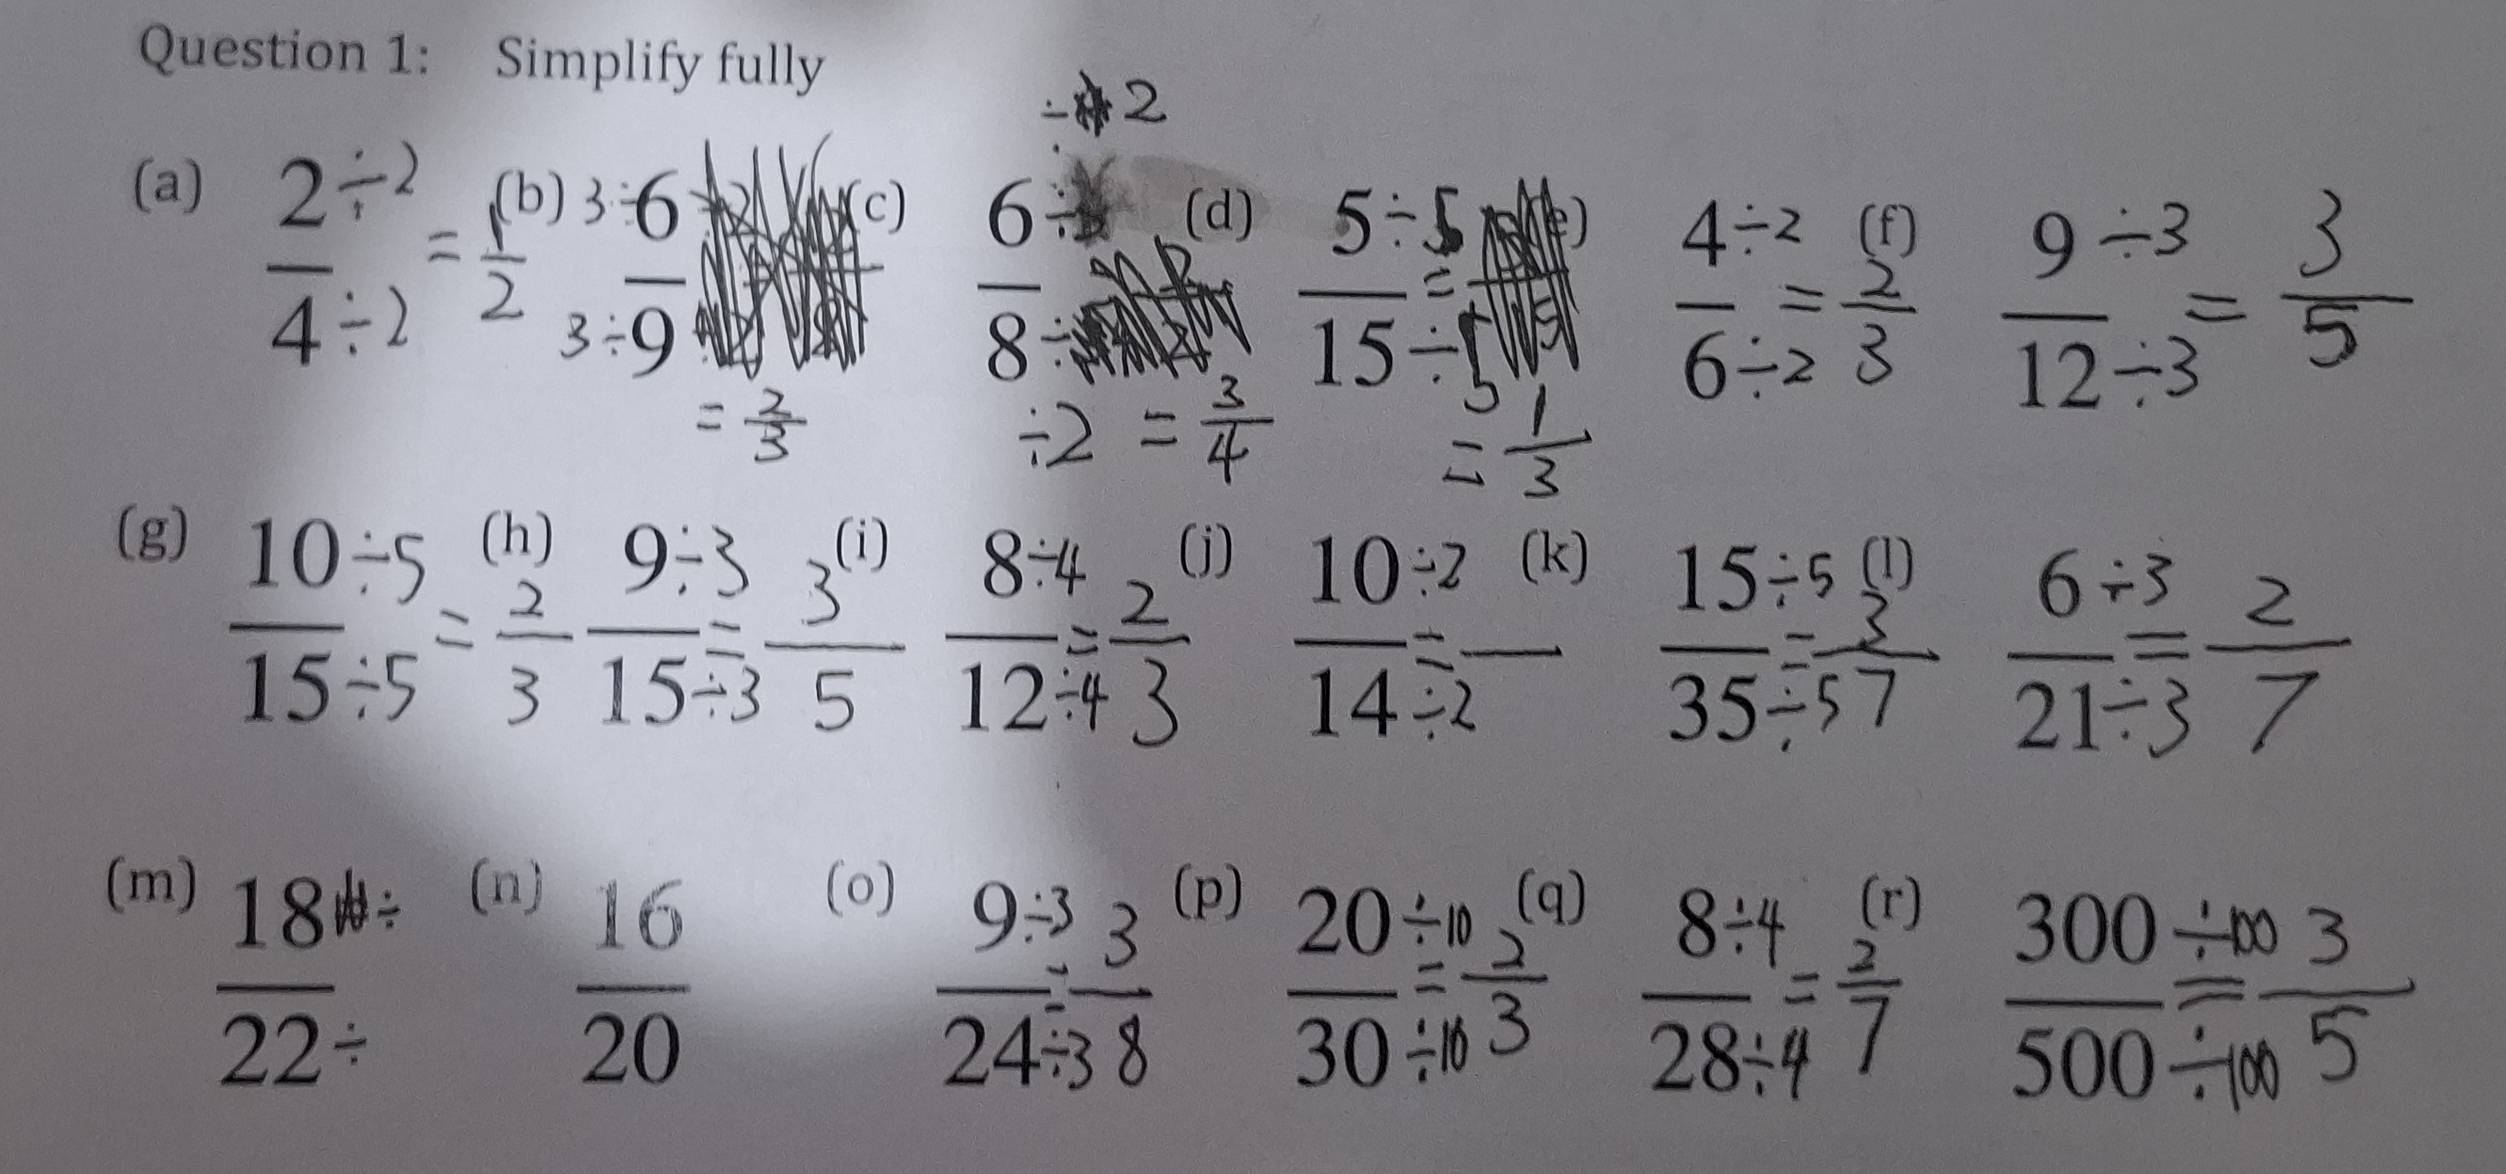 Question 1: Simplify fully
(a) 2÷2 / 4÷2 = 1/2 (b) 3÷6 / 3÷9 = 2/3 (c) 6÷2 / 8÷2 = 3/4 (d) 5÷5 / 15÷5 = 1/3 (e) 4÷2 / 6÷2 = 2/3 (f) 9÷3 / 12÷3 = 3/5
(g) 10÷5 / 15÷5 = 2/3 (h) 9÷3 / 15÷3 = 3/5 (i) 8÷4 / 12÷4 = 2/3 (j) 10÷2 / 14÷2 = — (k) 15÷5 / 35÷5 = 3/7 (l) 6÷3 / 21÷3 = 2/7
(m) 18÷ / 22÷ (n) 16/20 (o) 9÷3 / 24÷3 = 3/8 (p) 20÷10 / 30÷10 = 2/3 (q) 8÷4 / 28÷4 = 2/7 (r) 300÷100 / 500÷100 = 3/5